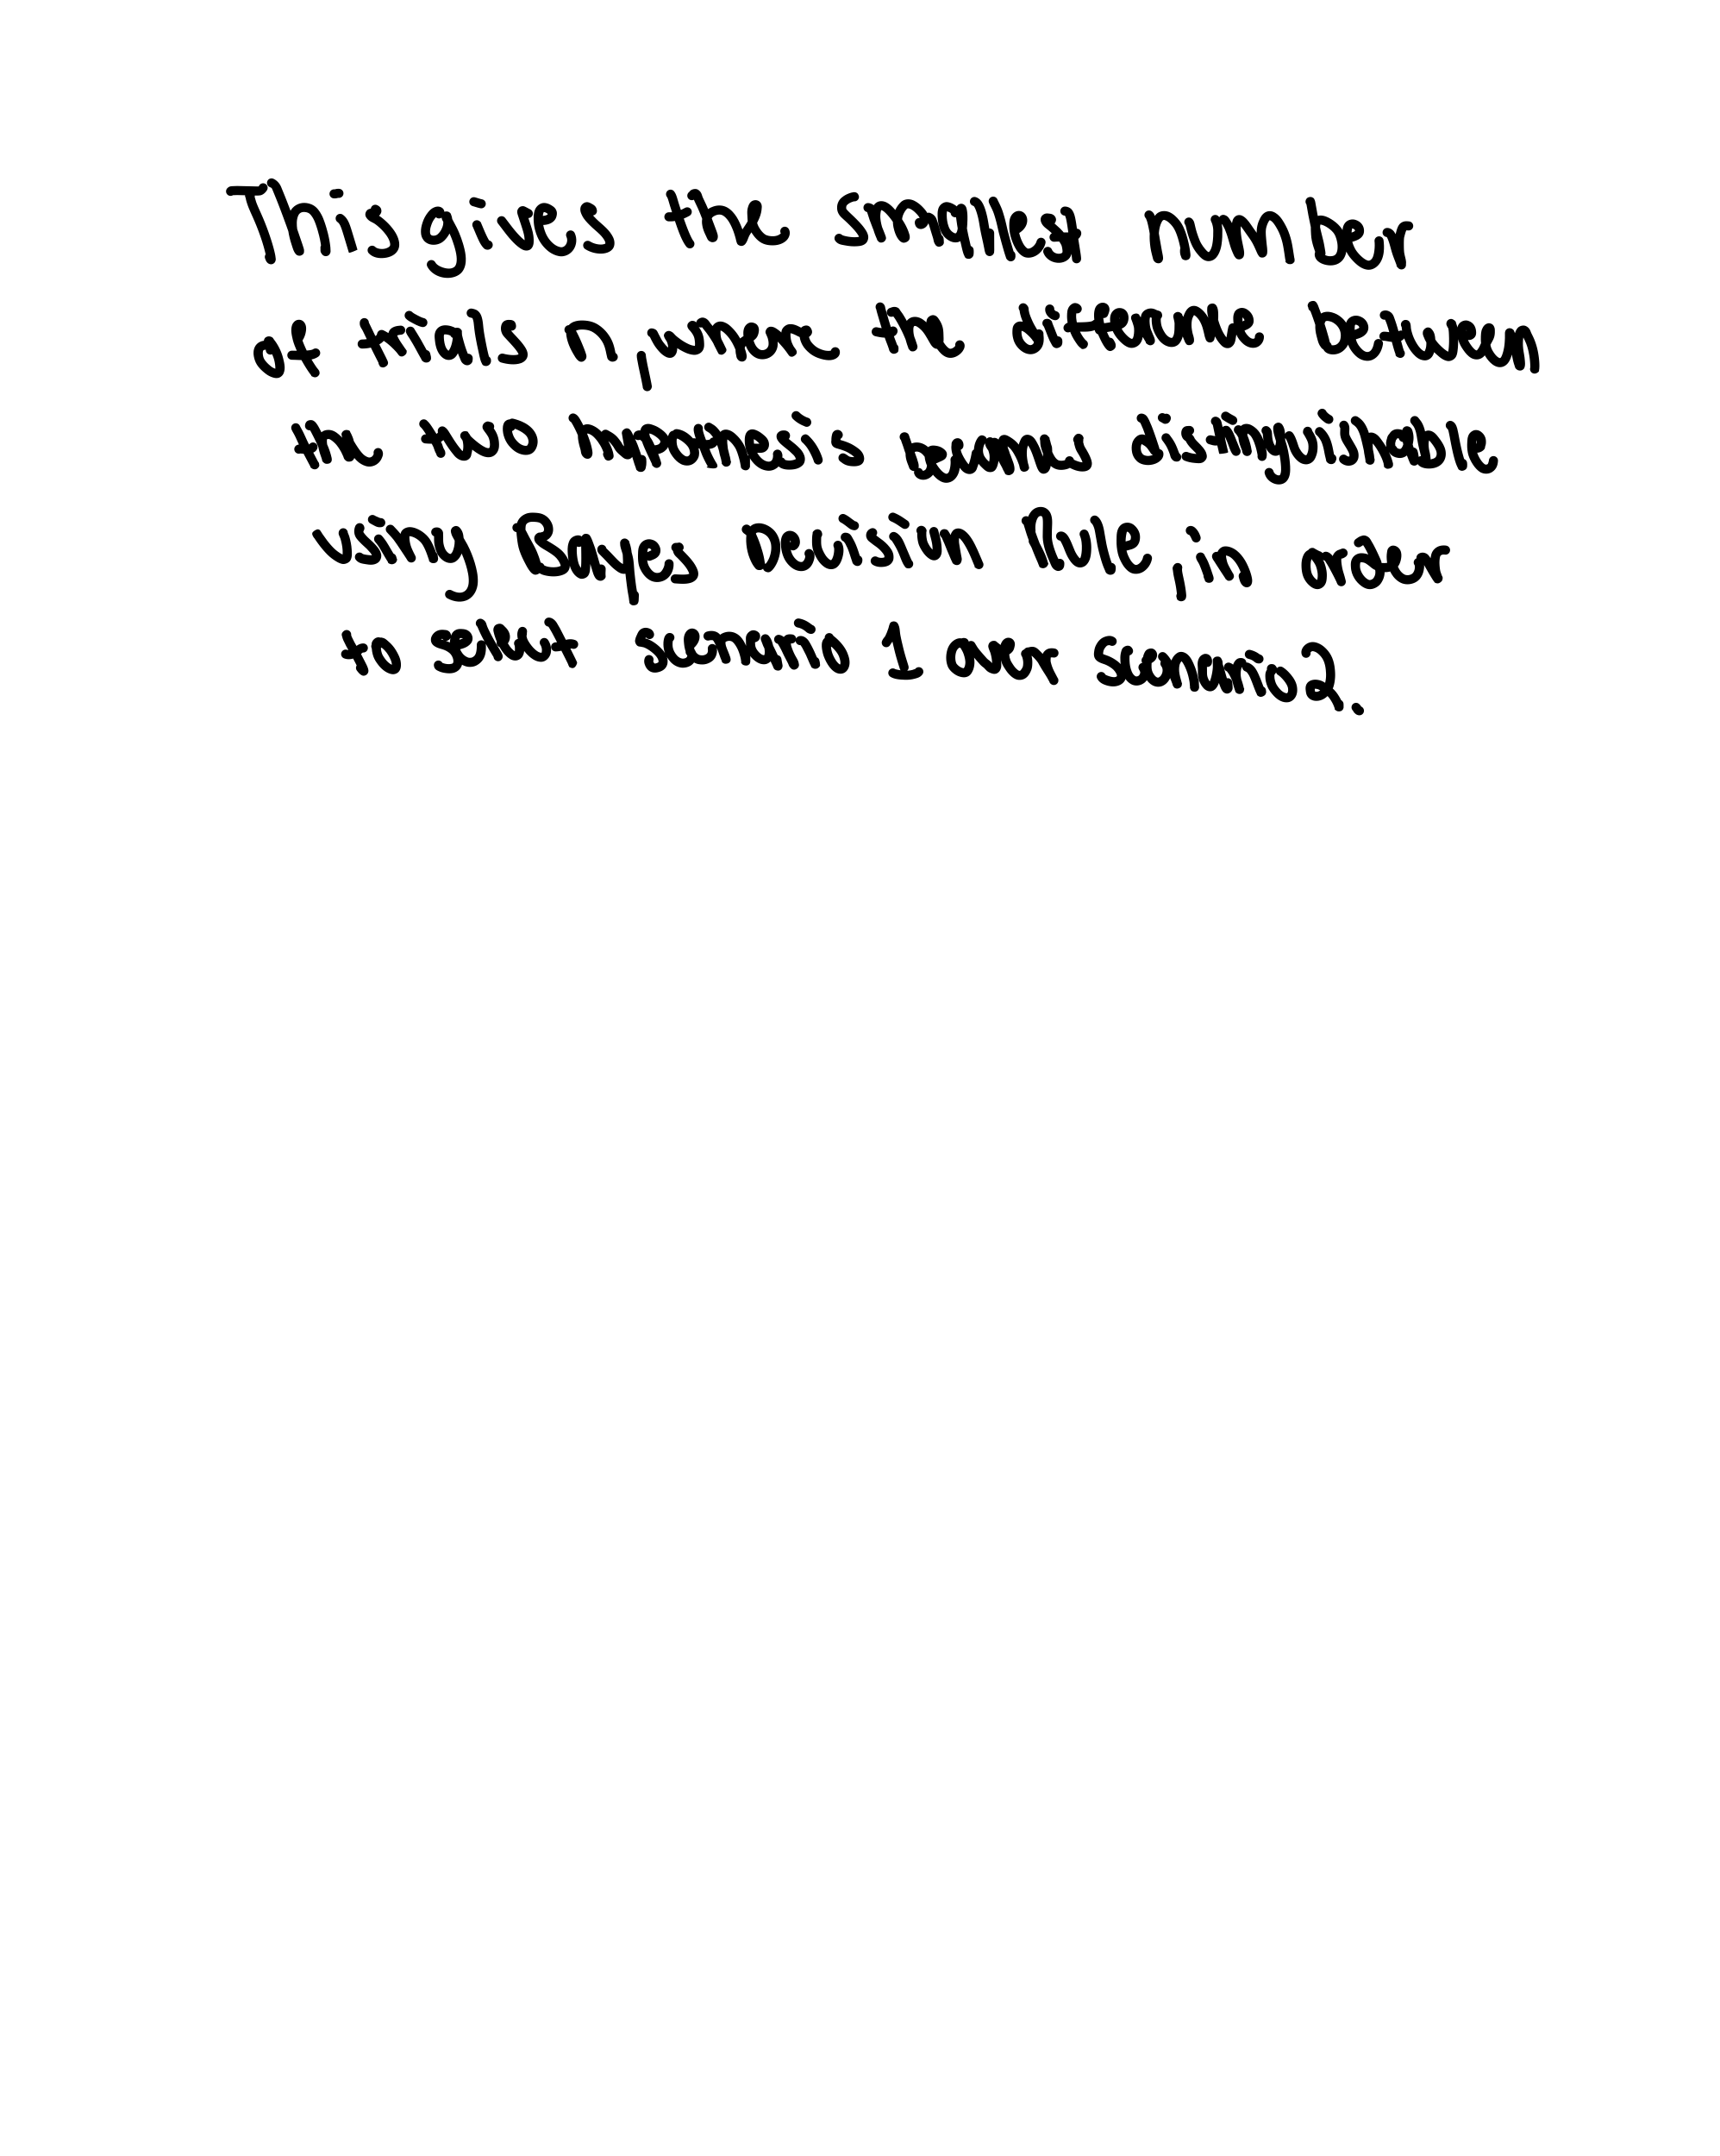 This gives the smallest number
of trials n, where the difference between
the two hypothesis becomes distinguishable
using Bayes Decision Rule, in order
to select scenario 1 over Scenario 2.